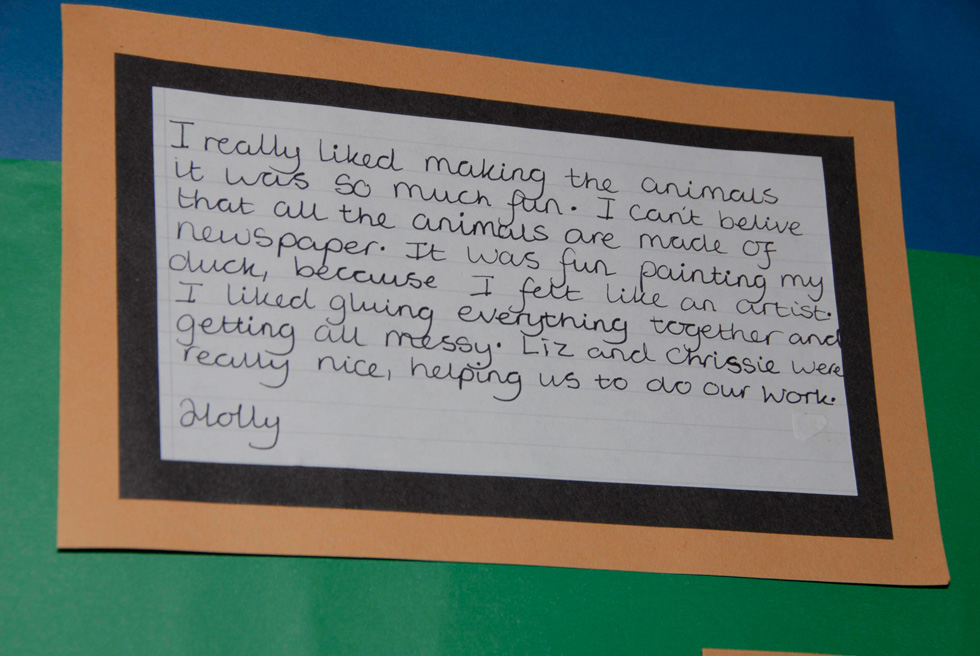 I really liked making the animals
it was so much fun. I can't belive
that all the animals are made of
newspaper. It was fun painting my
duck, because I felt like an artist.
I liked gluing everything together and
getting all messy. Liz and Chrissie were
really nice, helping us to do our work.
Holly